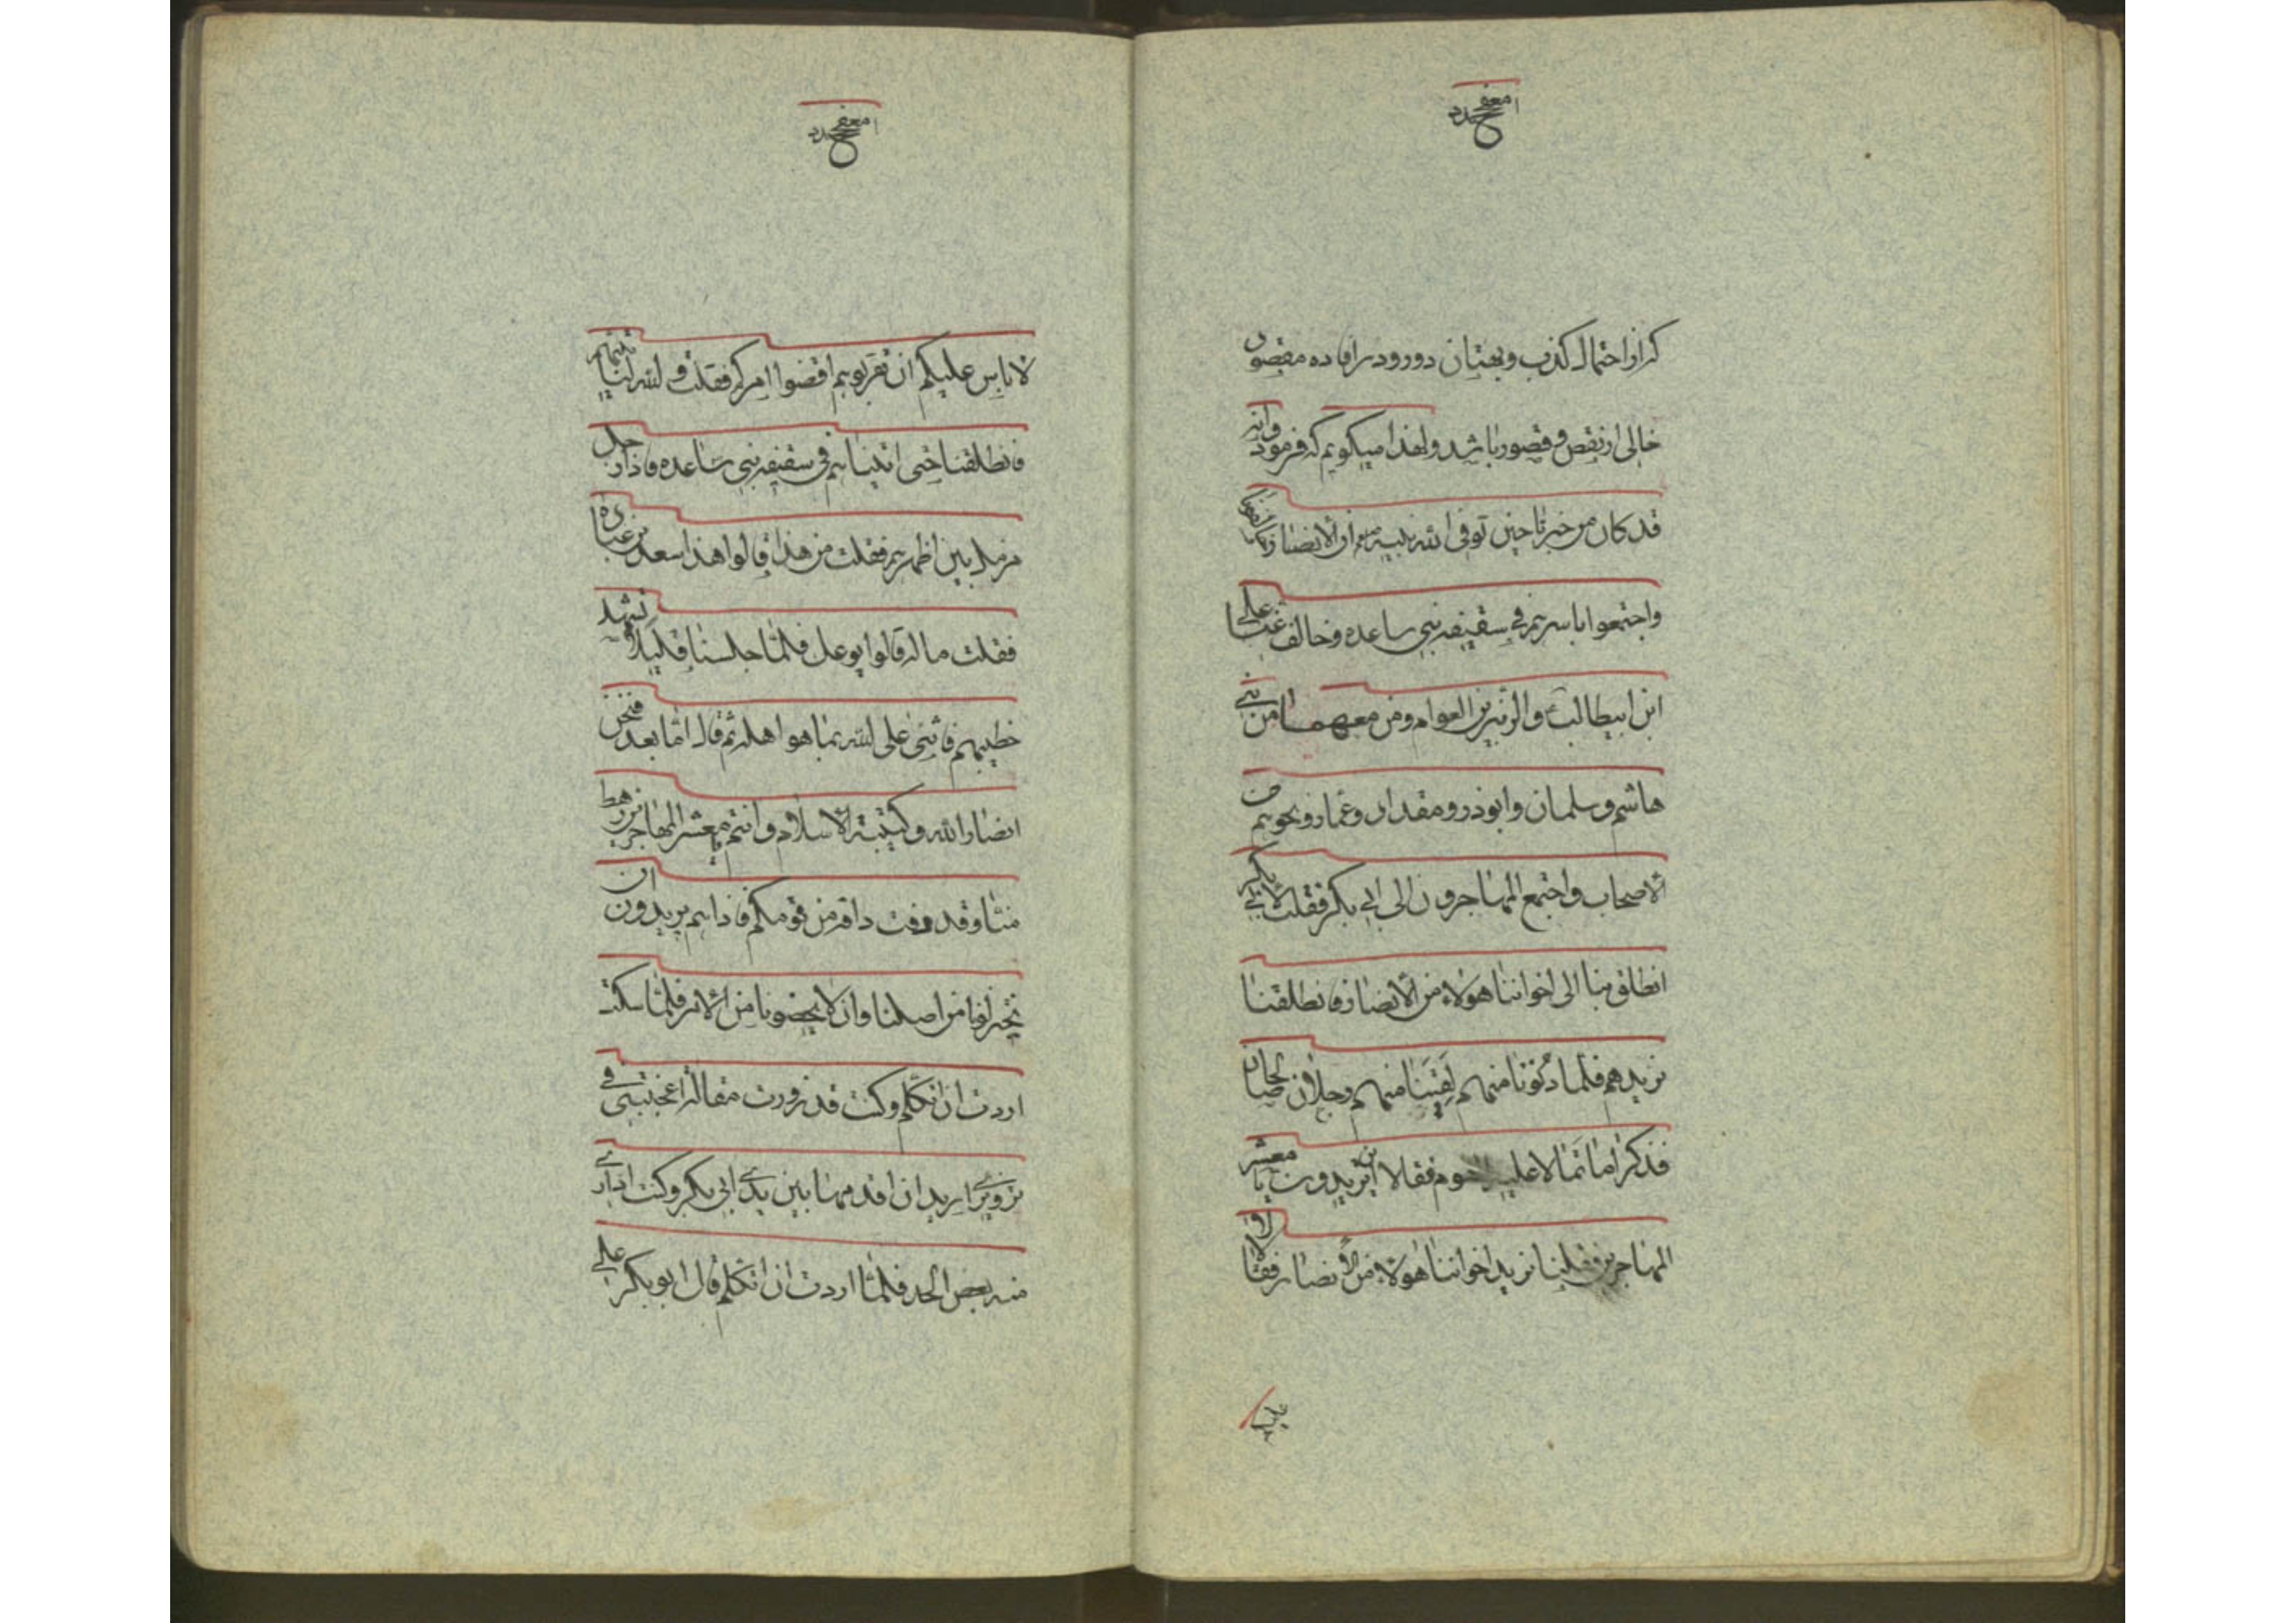 که از احتمال کذب و بهتان دور و در افاده مقصود
خالی از نقص و قصور باشد و لهذا میگویم که فرمود وانه
قد کان من خبرنا حین توفی الله نبیه ان الانصار
واجتمعوا باسرهم فی سقیفه بنی ساعده وخالف عنا علی
ابن ابیطالب والزبیر بن العوام ومن معهما من بنی
هاشم وسلمان وابوذر ومقداد وعمار ونحوهم من
الاصحاب واجتمع المهاجرون الی ابی بکر فقلت لابی بکر
انطلق بنا الی اخواننا هولاء من الانصار فانطلقنا
نریدهم فلما دنونا منهم لقینا منهم رجلان صالحان
فذکرا ما تمالا علیه فقالا این تریدون یا معشر
المهاجرین فقلنا نرید اخواننا هولاء من الانصار فقالا لا
لا باس علیکم ان تقربوهم اقضوا امرکم فقلت والله لناتینهم
فانطلقنا حتی اتیناهم فی سقیفه بنی ساعده فاذا رجل
مزمل بین اظهرهم فقلت من هذا قالوا هذا سعد بن عباده
فقلت ما له قالوا یوعک فلما جلسنا قلیلا تشهد
خطیبهم فاثنی علی الله بما هو اهله ثم قال اما بعد فنحن
انصار الله وکتیبة الاسلام وانتم یا معشر المهاجرین رهط
منا وقد دفت دافه من قومکم فاذا هم یریدون ان
یختزلونا من اصلنا وان لا یحضونا من الامر فلما سکت
اردت ان اتکلم وکنت قد زورت مقاله اعجبتنی فی
تزویری ارید ان اقدمها بین یدی ابی بکر وکنت اداری
منه بعض الحد فلما اردت ان اتکلم قال ابوبکر علی